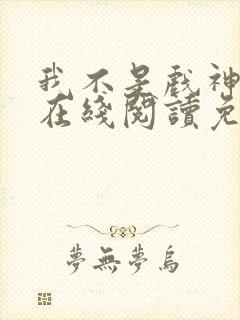 我不是戲神
在綫閱讀免
夢無夢烏